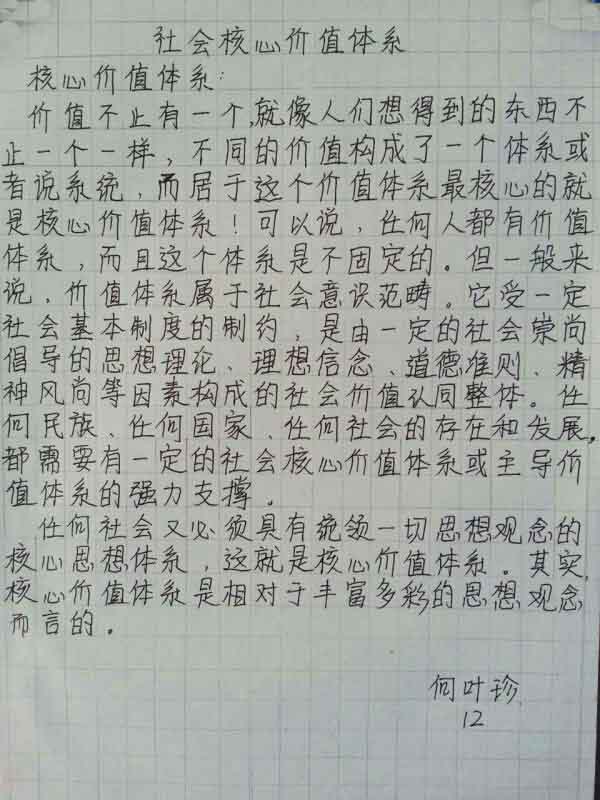 社会核心价值体系
核心价值体系:
价值不止有一个,就像人们想得到的东西不
止一个一样,不同的价值构成了一个体系或
者说系统,而居于这个价值体系最核心的就
是核心价值体系!可以说,任何人都有价值
体系,而且这个体系是不固定的。但一般来
说,价值体系属于社会意识范畴。它受一定
社会基本制度的制约,是由一定的社会崇尚
倡导的思想理论、理想信念、道德准则、精
神风尚等因素构成的社会价值认同整体。任
何民族、任何国家、任何社会的存在和发展,
都需要有一定的社会核心价值体系或主导价
值体系的强力支撑。
任何社会又必须具有统领一切思想观念的
核心思想体系,这就是核心价值体系。其实,
核心价值体系是相对于丰富多彩的思想观念
而言的。
何叶珍
12